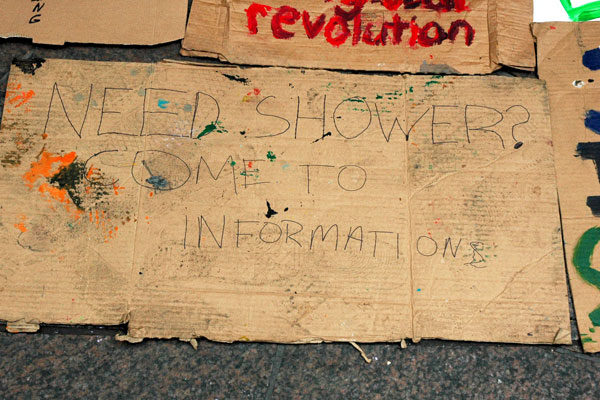 revolution
NEED SHOWER?
COME TO
INFORMATION